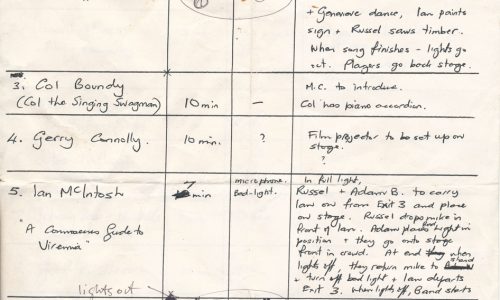 + Genevieve dance, Ian paints
sign + Russel saws timber.
When song finishes - lights go
out. Players go back stage.
3. Col Boundy
(Col the Singing Swagman)
10 min
—
M.C. to introduce.
Col has piano accordion.
4. Gerry Connolly.
10 min.
?
Film projector to be set up on
stage.
?
5. Ian McIntosh
"A Commoners Guide to
Vienna"
7
min
microphone.
Bed-light.
In full light,
Russel + Adam B. to carry
Ian on from Exit 3 and place
on stage. Russel drops mike in
front of Ian. Adam places bed light in
position + they go onto stage
front in crowd. At end when
lights off, they return mike to stand
+ turn off bed light + Ian departs
Exit 3. When lights off, Band starts
lights out